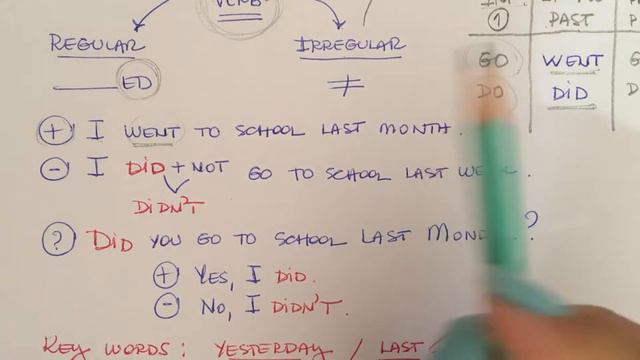 VERB
REGULAR IRREGULAR ① PAST
ED ≠ GO WENT
DO DID
+ I WENT TO SCHOOL LAST MONTH.
- I DID + NOT GO TO SCHOOL LAST
DIDN'T
? DID YOU GO TO SCHOOL LAST ?
+ YES, I DID.
- NO, I DIDN'T.
KEY WORDS: YESTERDAY / LAST